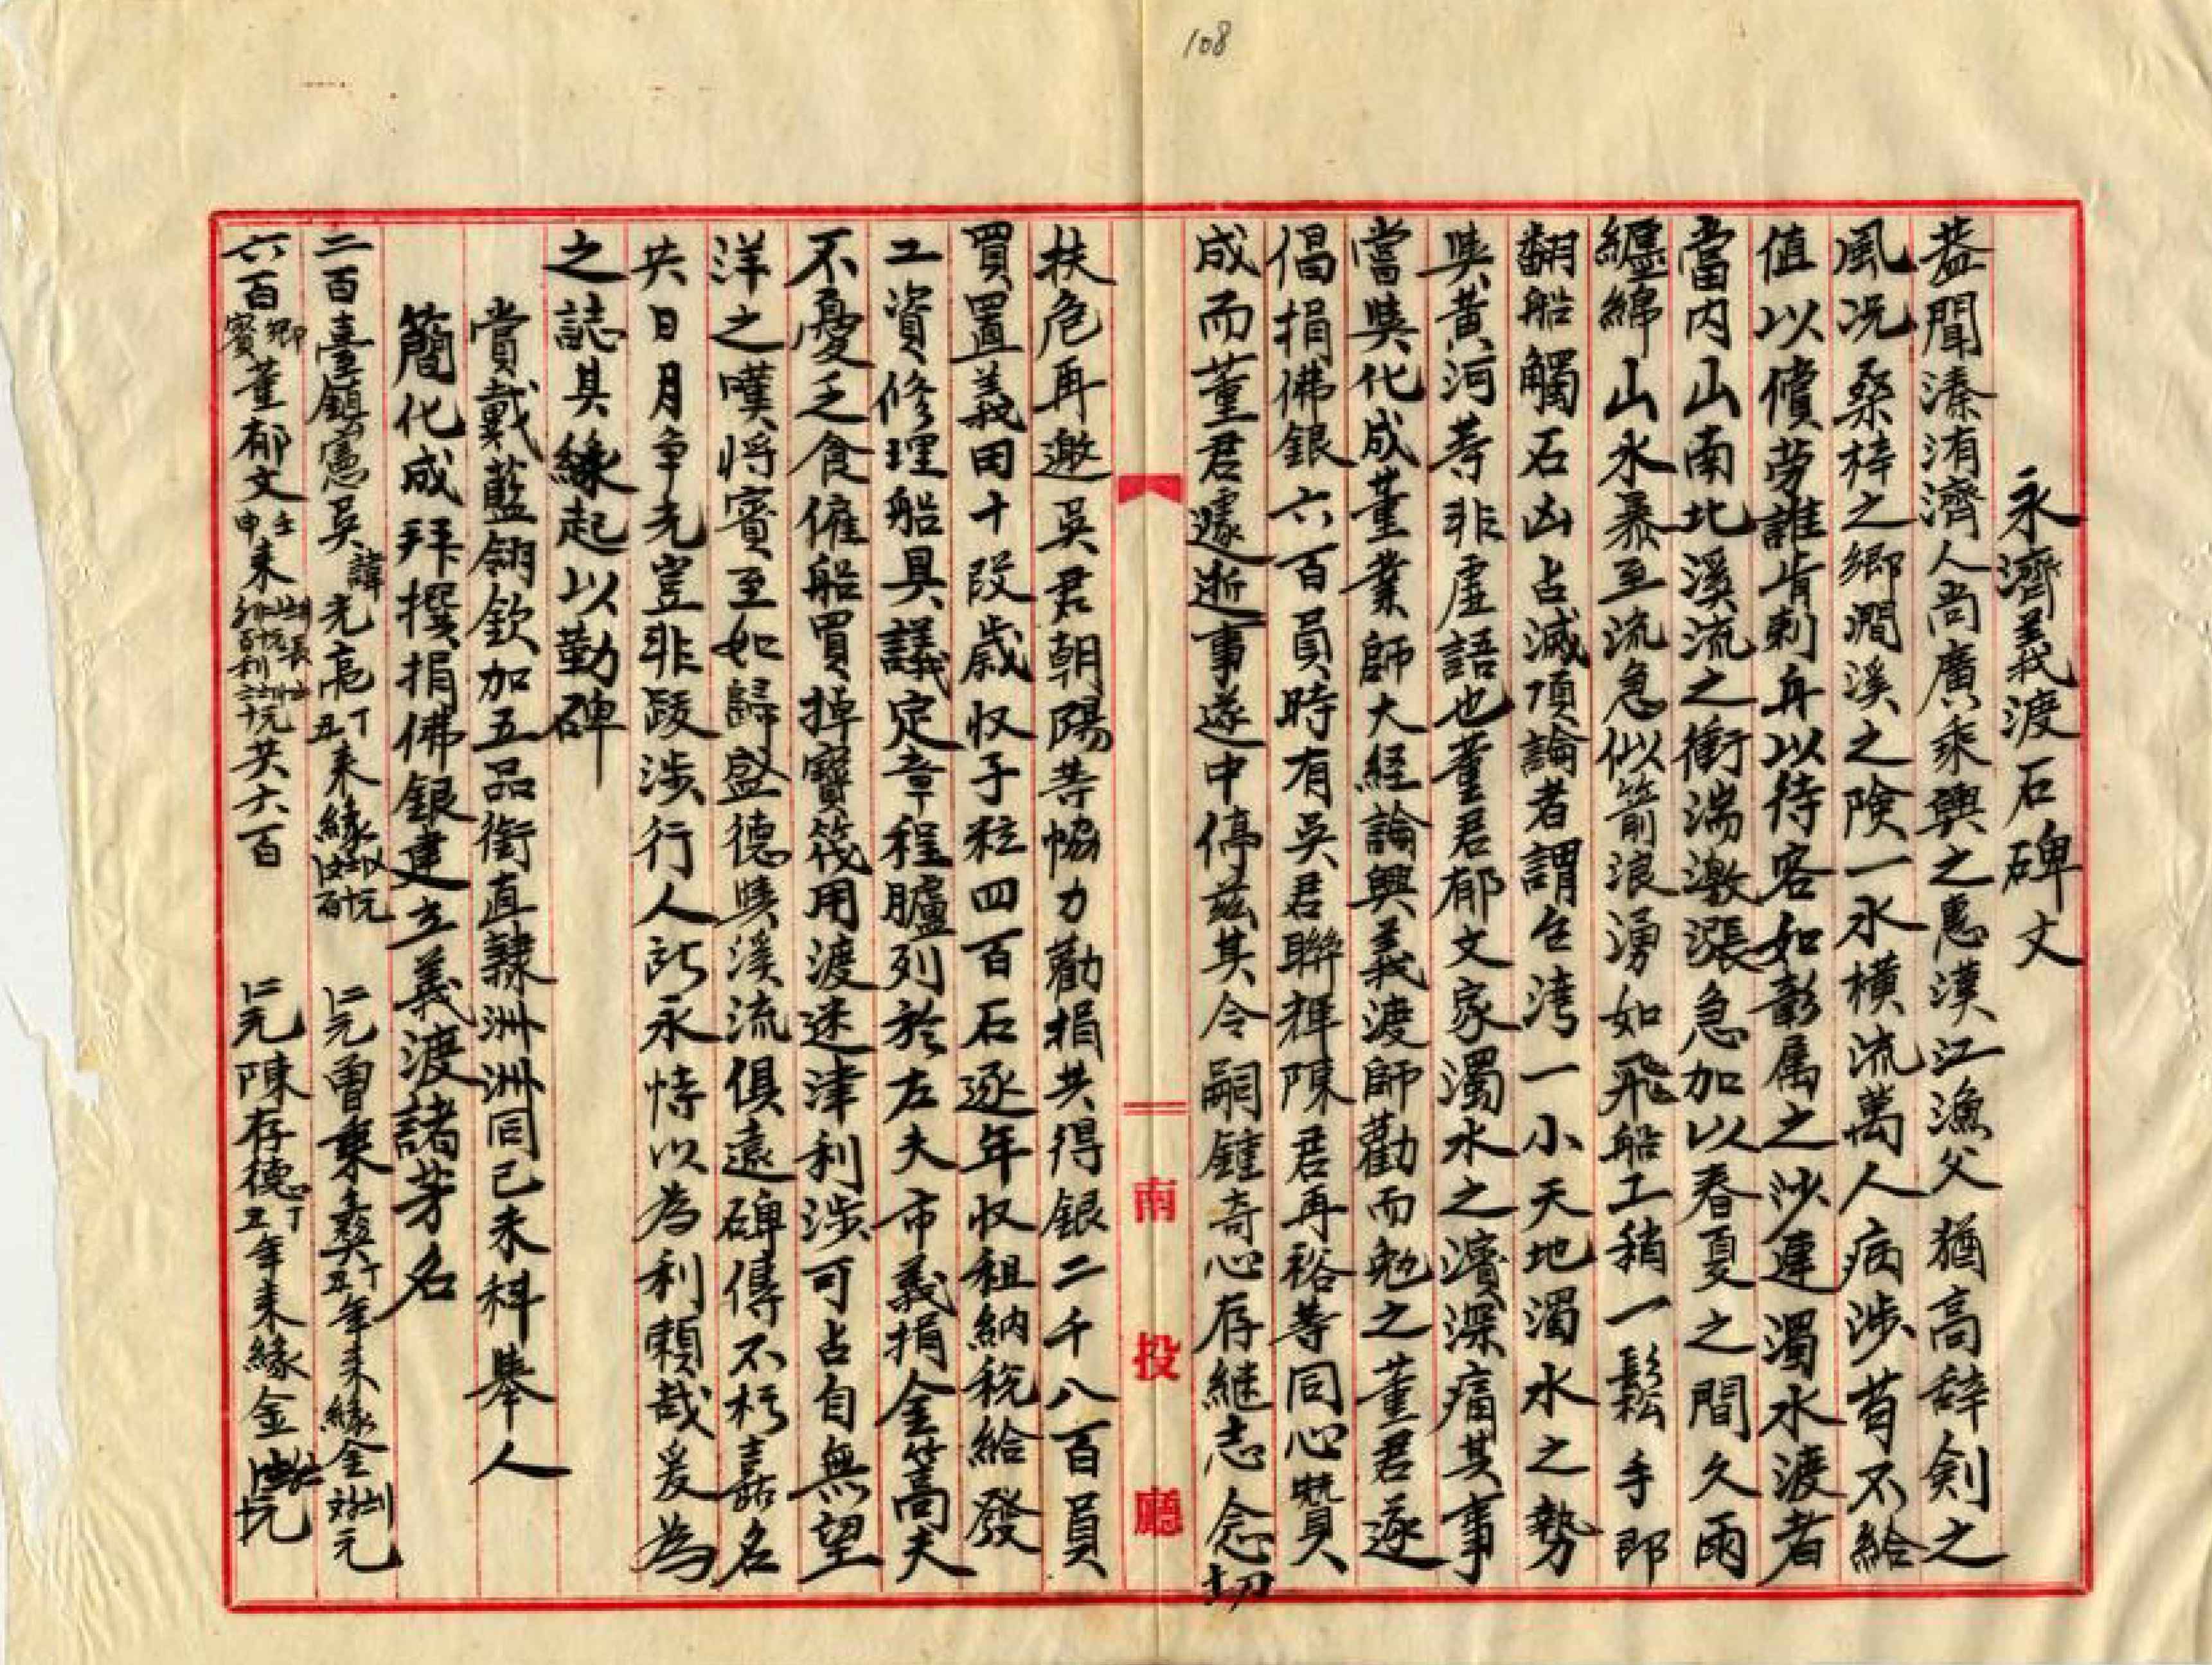 108
永濟義渡石碑文
蓋聞溱洧濟人尚廣乘輿之惠漢江漁父猶高辞剣之
風況桑梓之鄉澗溪之険一水橫流萬人病涉苟不給
值以償劳誰肯刺舟以待客如彰属之沙連濁水渡者
當内山南北溪流之衝湍激漲急加以春夏之間久雨
纏綿山水暴至流急似箭浪湧如飛船工稍一鬆手即
翻船觸石凶占滅頂論者謂台湾一小天地濁水之勢
與黄河等非虚語也董君郁文家濁水之濱深痛其事
當與化成董業師大経論興義渡師勸而勉之董君遂
倡捐佛銀六百員時有吳君聯輝陳君再裕等同心贊
成而董君遽逝事遂中停茲其令嗣鍾奇心存継志念切
扶危再邀吳君朝陽等恊力勸捐共得銀二千八百員
買置義田十段歲収子粒四百石逐年収租納税給發
工資修理船具議定章程臚列於左夫市義捐金篙夫
不憂乏食僱船買掉寶筏用渡迷津利涉可占自無望
洋之嘆将賓至如歸盛德與溪流俱遠碑傳不朽嘉名
共日月争光豈非跋涉行人所永恃以為利賴哉爰為
之誌其緣起以勤碑
賞戴藍翎欽加五品銜直隸洲洲同己未科舉人
簡化成拜撰捐佛銀建立義渡諸芳名
二百臺鎮憲吳諱光亮丁丑来緣 百元 仁元曹秉彝丁丑年来緣金 元
六百鄉賓董郁文壬申来 元共六百 仁元陳存德丁丑年来緣金 元
南投廳